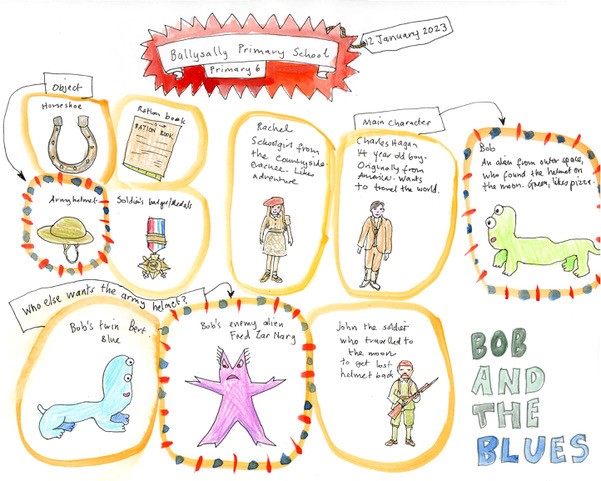 Ballysally Primary School
Primary 6
12 January 2023
Object
Horseshoe
Ration book
RATION BOOK
Army helmet
Soldier's badges/medals
Rachel
Schoolgirl from
the countryside.
Likes
Adventure
Main Character
Charles Hagan
14 year old boy.
Originally from
America. Wants
to travel the world.
Bob
An alien from outer space,
who found the helmet on
the moon. Green, likes pizza.
Who else wants the army helmet?
Bob's twin Bert
Blue
Bob's enemy alien
Fred Zar Nary
John the soldier
who travelled to
the moon
to get lost
helmet back
BOB
AND
THE
BLUES